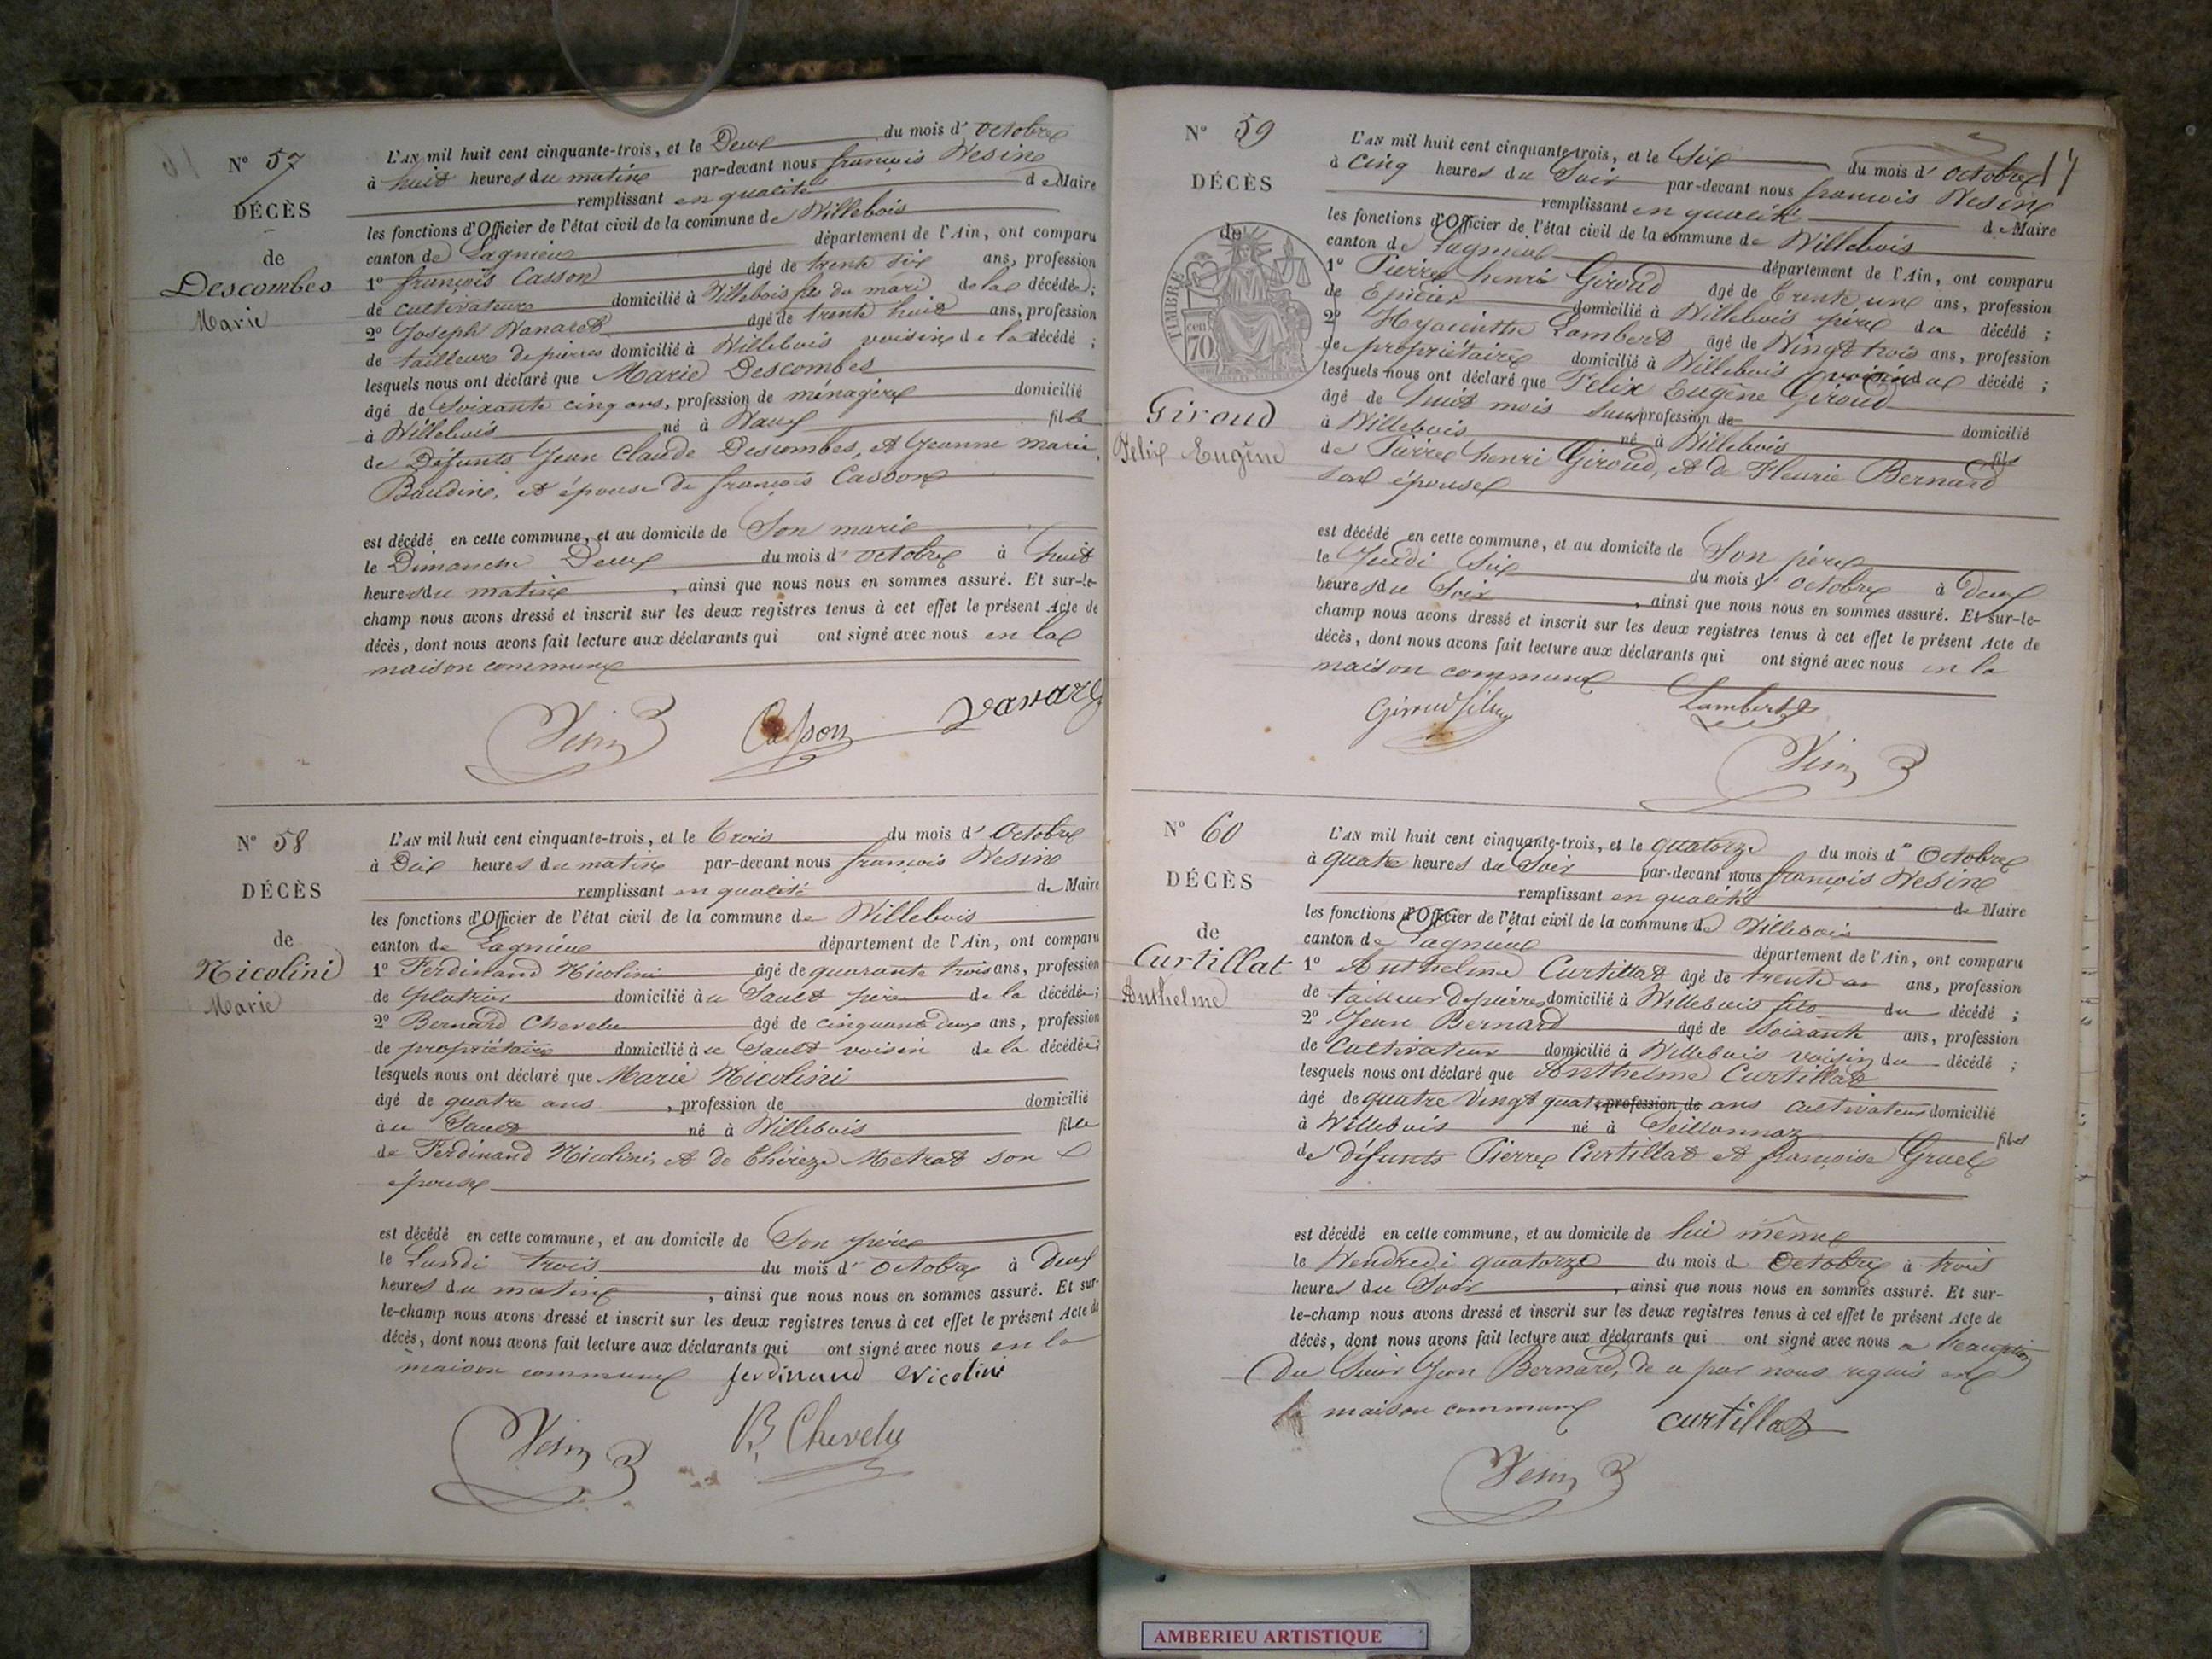 N° 57
DÉCÈS
de
Descombes
Marie
L'AN mil huit cent cinquante-trois, et le Deux du mois d' octobre
à huit heures du matin par-devant nous françois Vesin
remplissant en qualité de Maire
les fonctions d'Officier de l'état civil de la commune de Villebois
canton de Lagnieu département de l'Ain, ont comparu
1° françois Casson âgé de trente six ans, profession
de cultivateur domicilié à Villebois fils du mari de la décédée;
2° Joseph Vanaret âgé de trente huit ans, profession
de tailleur de pierres domicilié à Villebois voisin de la décédé;
lesquels nous ont déclaré que Marie Descombes
âgé de Soixante cinq ans, profession de ménagère domicilié
à Villebois né à Vaux fille
de Défunts Jean Claude Descombes, et Jeanne marie
Baudin, et épouse de françois Casson
est décédé en cette commune, et au domicile de Son mari
le Dimanche Deux du mois d' octobre à huit
heures du matin, ainsi que nous nous en sommes assuré. Et sur-le-
champ nous avons dressé et inscrit sur les deux registres tenus à cet effet le présent Acte de
décès, dont nous avons fait lecture aux déclarants qui ont signé avec nous en la
maison commune
Vesin Casson Vanaret
N° 58
DÉCÈS
de
Nicolini
Marie
L'AN mil huit cent cinquante-trois, et le trois du mois d' Octobre
à Dix heures du matin par-devant nous françois Vesin
remplissant en qualité de Maire
les fonctions d'Officier de l'état civil de la commune de Villebois
canton de Lagnieu département de l'Ain, ont comparu
1° Ferdinand Nicolini âgé de quarante trois ans, profession
de platrier domicilié à u Sault père de la décédée;
2° Bernard Chevelu âgé de cinquante deux ans, profession
de propriétaire domicilié à u Sault voisin de la décédée;
lesquels nous ont déclaré que Marie Nicolini
âgé de quatre ans, profession de domicilié
à u Sault né à Villebois fille
de Ferdinand Nicolini, et de Thérèze Metrat son
épouse
est décédé en cette commune, et au domicile de Son père
le Lundi trois du mois d' octobre à Deux
heures du matin, ainsi que nous nous en sommes assuré. Et sur-
le-champ nous avons dressé et inscrit sur les deux registres tenus à cet effet le présent Acte de
décès, dont nous avons fait lecture aux déclarants qui ont signé avec nous en la
maison commune ferdinand Nicolini
Vesin B. Chevelu
17
N° 59
DÉCÈS
de
TIMBRE
cen
70
Giroud
Felix Eugène
L'AN mil huit cent cinquante-trois, et le Six du mois d' octobre
à cinq heures du Soir par-devant nous françois Vesin
remplissant en qualité de Maire
les fonctions d'Officier de l'état civil de la commune de Villebois
canton de Lagnieu département de l'Ain, ont comparu
1° Pierre henri Giroud âgé de trente une ans, profession
de Epicier domicilié à Villebois père du décédé;
2° Hyacinthe Lambert âgé de Vingt trois ans, profession
de propriétaire domicilié à Villebois voisin du décédé;
lesquels nous ont déclaré que Felix Eugène Giroud
âgé de huit mois sans profession de domicilié
à Villebois né à Villebois fils
de Pierre henri Giroud, et de Fleurie Bernard
son épouse
est décédé en cette commune, et au domicile de Son père
le Jeudi Six du mois d' octobre à Deux
heures du Soir, ainsi que nous nous en sommes assuré. Et sur-le-
champ nous avons dressé et inscrit sur les deux registres tenus à cet effet le présent Acte de
décès, dont nous avons fait lecture aux déclarants qui ont signé avec nous en la
maison commune
Giroud Lambert
Vesin
N° 60
DÉCÈS
de
Curtillat
Anthelme
L'AN mil huit cent cinquante-trois, et le quatorze du mois d' Octobre
à quatre heures du Soir par-devant nous françois Vesin
remplissant en qualité de Maire
les fonctions d'Officier de l'état civil de la commune de Villebois
canton de Lagnieu département de l'Ain, ont comparu
1° Anthelme Curtillat âgé de trente ans, profession
de tailleur de pierres domicilié à Villebois fils du décédé;
2° Jean Bernard âgé de Soixante ans, profession
de Cultivateur domicilié à Villebois voisin du décédé;
lesquels nous ont déclaré que Anthelme Curtillat
âgé de quatre Vingt quatre profession de ans cultivateur domicilié
à Villebois né à Seillonnaz fils
de défunts Pierre Curtillat et françoise Gruel
est décédé en cette commune, et au domicile de lui même
le Vendredi quatorze du mois d Octobre à trois
heures du Soir, ainsi que nous nous en sommes assuré. Et sur-
le-champ nous avons dressé et inscrit sur les deux registres tenus à cet effet le présent Acte de
décès, dont nous avons fait lecture aux déclarants qui ont signé avec nous a l'exception
du Sieur Jean Bernard, de ce par nous requis en
la maison commune curtillat
Vesin
AMBERIEU ARTISTIQUE